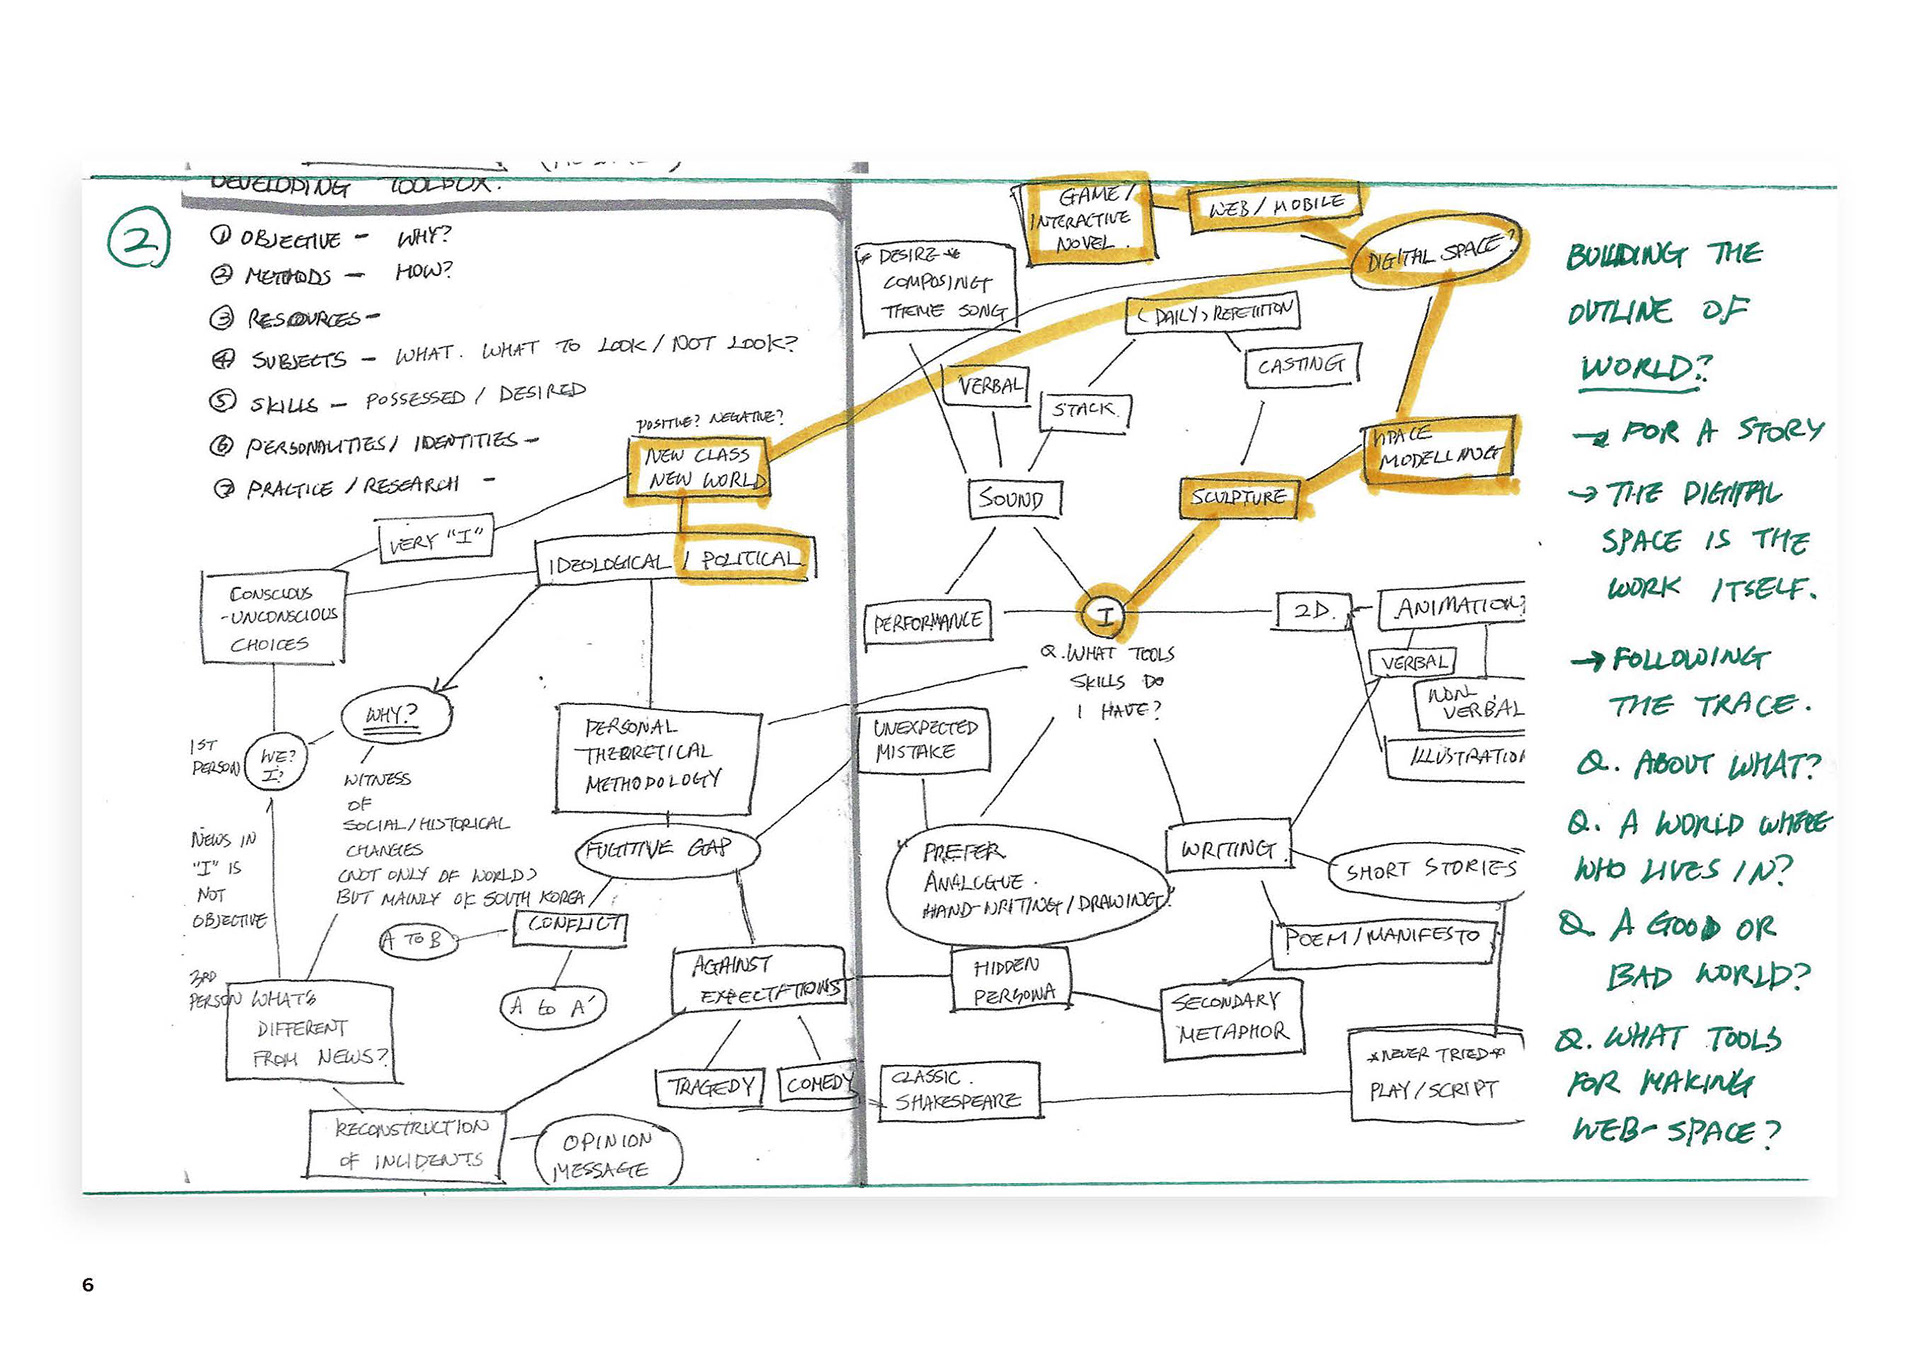 DEVELOPING TOOLBOX.
2
① OBJECTIVE - WHY?
② METHODS - HOW?
③ RESOURCES -
④ SUBJECTS - WHAT. WHAT TO LOOK / NOT LOOK?
⑤ SKILLS - POSSESSED / DESIRED
⑥ PERSONALITIES / IDENTITIES -
⑦ PRACTICE / RESEARCH -
POSITIVE? NEGATIVE?
NEW CLASS
NEW WORLD
VERY "I"
IDEOLOGICAL / POLITICAL
CONSCIOUS
-UNCONSCIOUS
CHOICES
WHY?
1ST
PERSON
WE?
I?
WITNESS
OF
SOCIAL/HISTORICAL
CHANGES
(NOT ONLY OF WORLD)
BUT MAINLY OF SOUTH KOREA
NEWS IN
"I" IS
NOT
OBJECTIVE
3RD
PERSON
WHAT'S
DIFFERENT
FROM NEWS?
PERSONAL
THEORETICAL
METHODOLOGY
FUGITIVE GAP
CONFLICT
A TO B
A to A'
AGAINST
EXPECTATIONS
TRAGEDY
COMEDY
RECONSTRUCTION
OF INCIDENTS
OPINION
MESSAGE
GAME /
INTERACTIVE
NOVEL.
WEB / MOBILE
DIGITAL SPACE?
* DESIRE *
COMPOSING
THEME SONG
(DAILY) REPETITION
CASTING
VERBAL
STACK.
SPACE
MODELLING
SOUND
SCULPTURE
PERFORMANCE
I
2D.
ANIMATION?
VERBAL
NON
VERBAL
ILLUSTRATION
Q. WHAT TOOLS
SKILLS DO
I HAVE?
UNEXPECTED
MISTAKE
PREFER
ANALOGUE.
HAND-WRITING/DRAWING.
WRITING.
SHORT STORIES
POEM / MANIFESTO
HIDDEN
PERSONA
SECONDARY
METAPHOR
CLASSIC.
SHAKESPEARE
*NEVER TRIED*
PLAY / SCRIPT
BUILDING THE
OUTLINE OF
WORLD?
→ FOR A STORY
→ THE DIGITAL
SPACE IS THE
WORK ITSELF.
→ FOLLOWING
THE TRACE.
Q. ABOUT WHAT?
Q. A WORLD WHERE
WHO LIVES IN?
Q. A GOOD OR
BAD WORLD?
Q. WHAT TOOLS
FOR MAKING
WEB-SPACE?
6